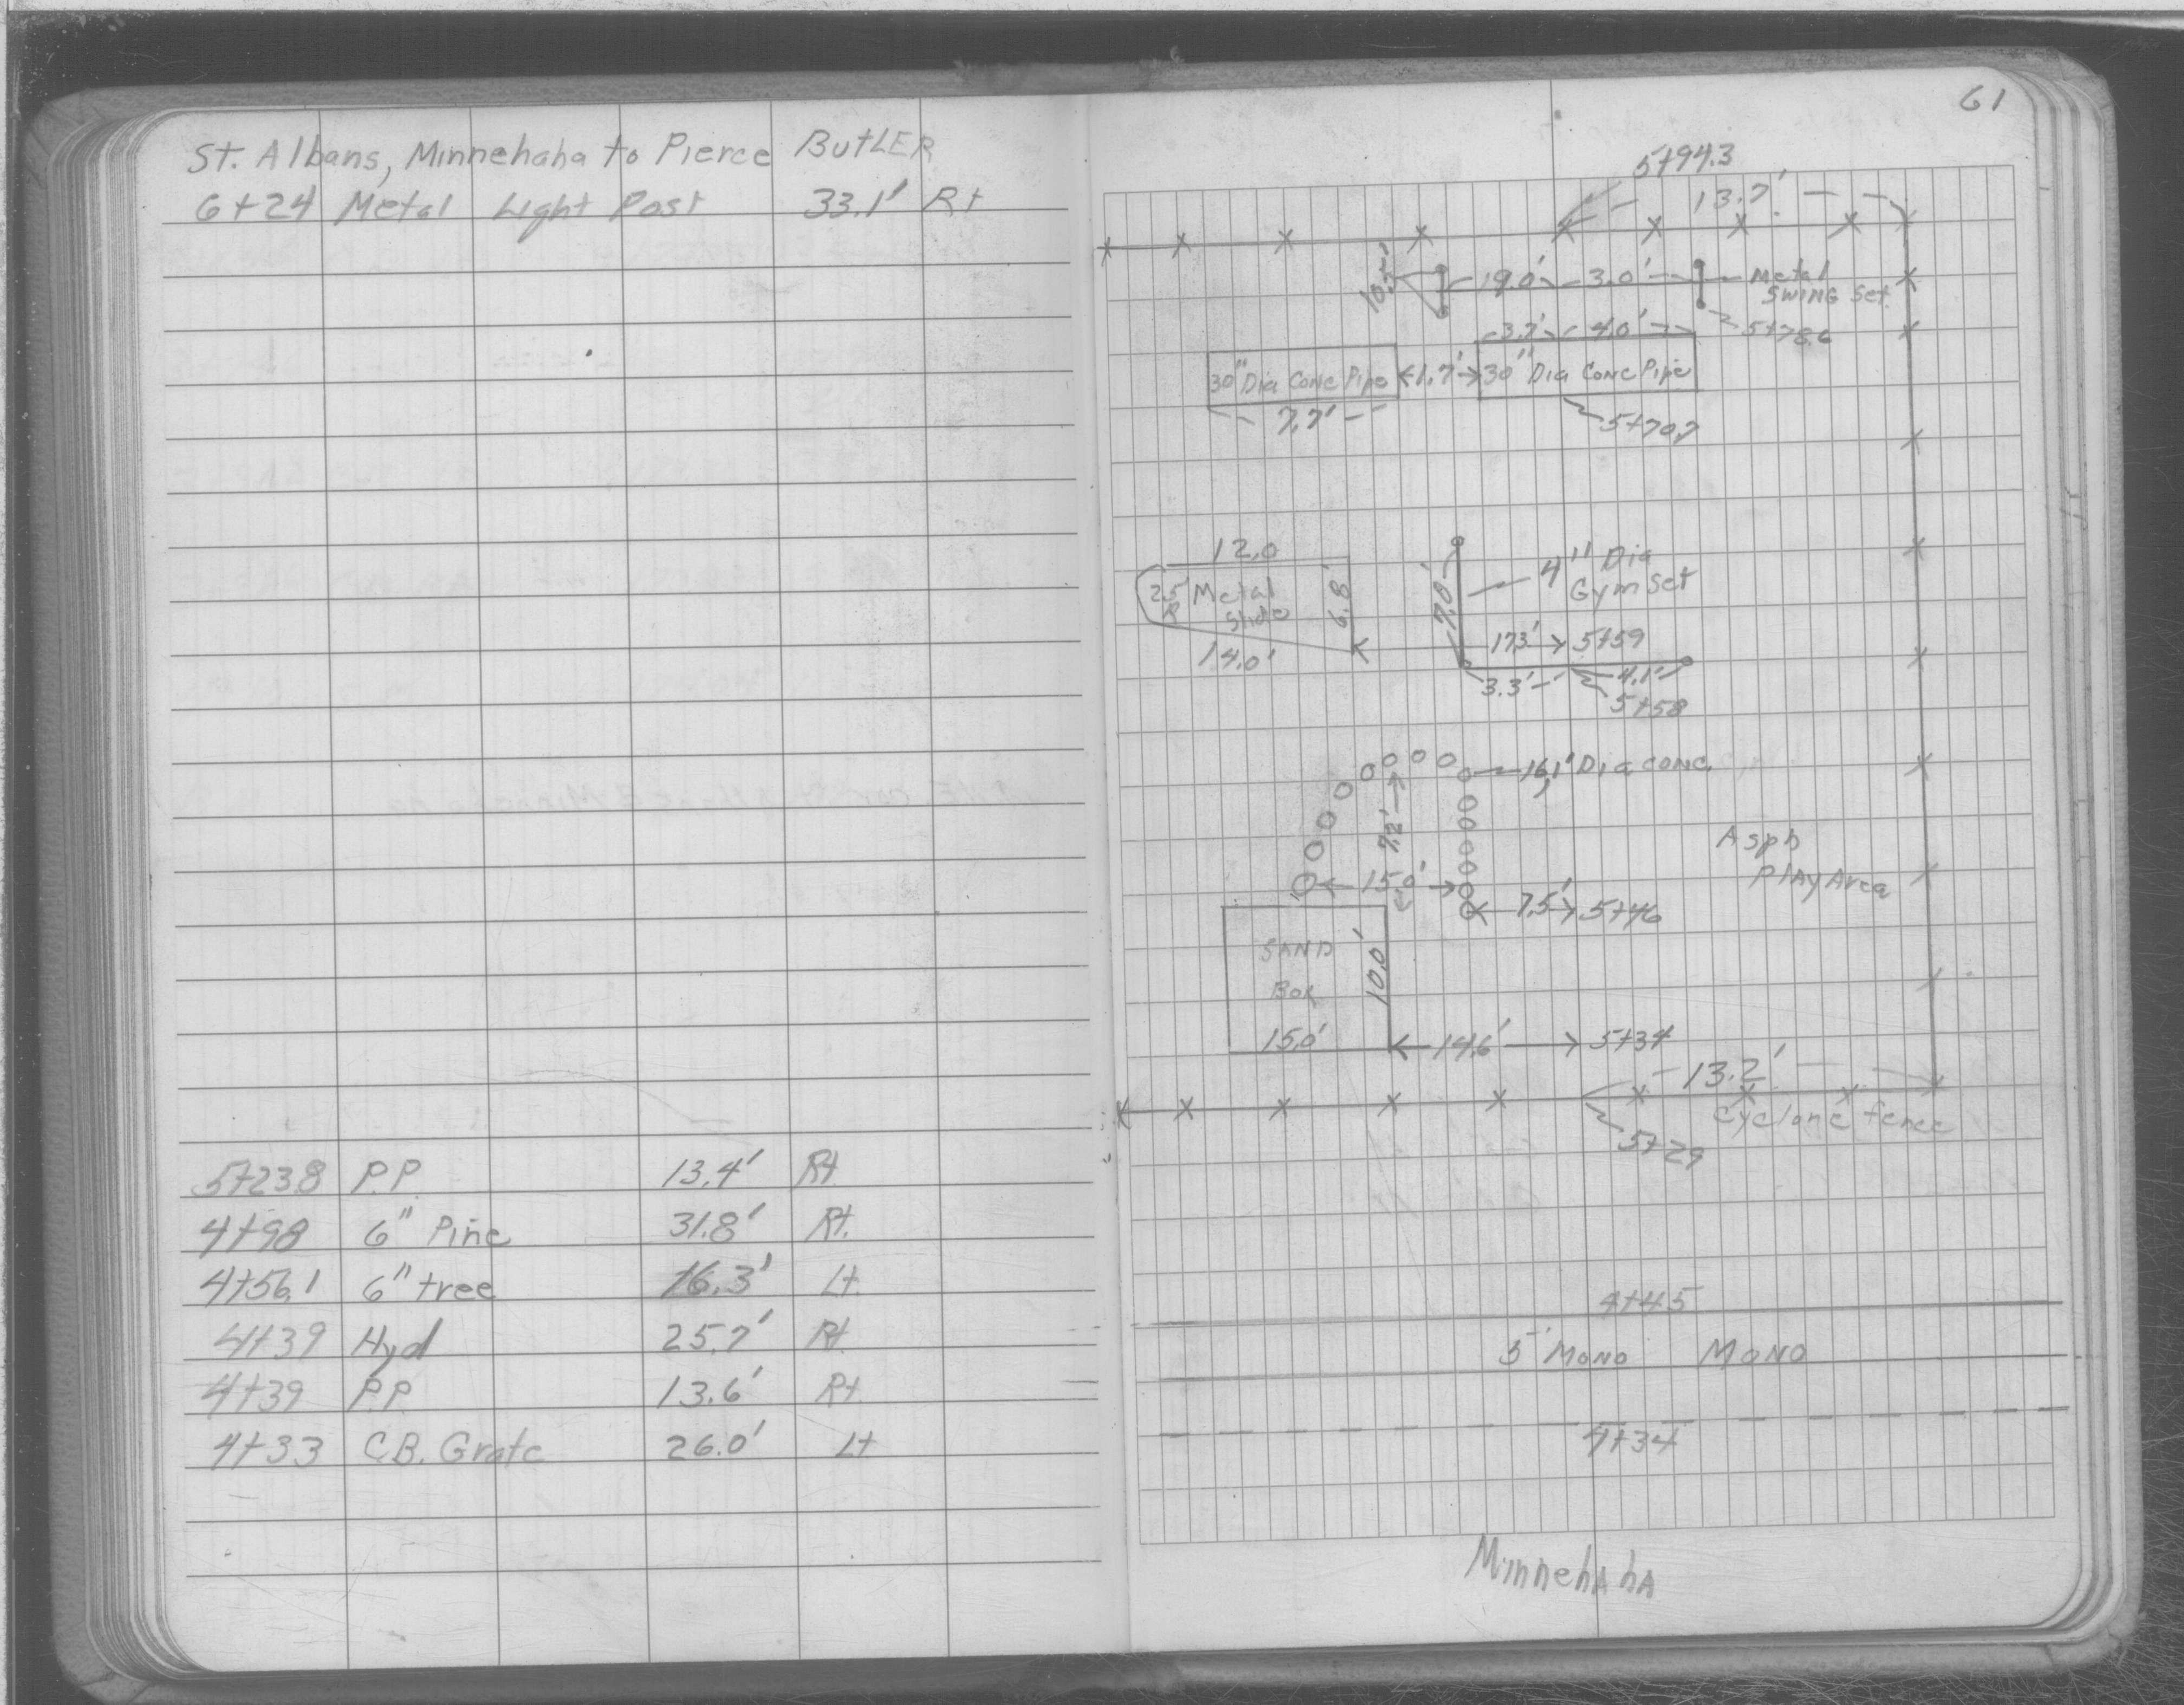 St. Albans, Minnehaha to Pierce BUTLER
6+24 Metal Light Post 33.1' Rt
5+23.8 P.P. 13.4' Rt
4+98 6" Pine 31.8' Rt.
4+56.1 6" tree 16.3' Lt.
4+39 Hyd 25.7' Rt.
4+39 P.P. 13.6' Rt.
4+33 C.B. Grate 26.0' Lt
61
5+94.3
13.7'
19.0' 3.0' Metal
SWING Set
3.7' 4.0' 5+78.6
30" Dia Conc Pipe 1.7' 30" Dia Conc Pipe
7.7' 5+70.7
12.0 4" Dia
Gym Set
2.5 Metal 6.8' 7.0'
R Slide
17.3' 5+59
14.0' 3.3' 4.1'
5+58
Dia conc.
7.2'
Asph
Play Area
15.0'
7.5' 5+46
SAND
BOX 10.0'
15.0' 14.6' 5+34
13.2'
Cyclone fence
5+29
4+45
5' MONO MONO
4+34
MinnehAhA